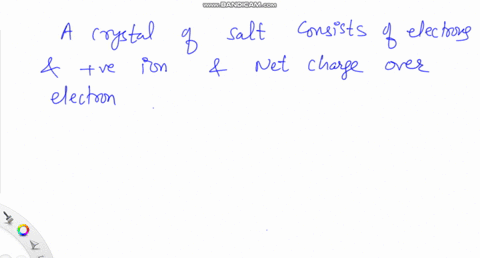 WWW.BANDICAM.COM
A crystal of salt consists of electrons
& +ve ion & Net charge over
electron